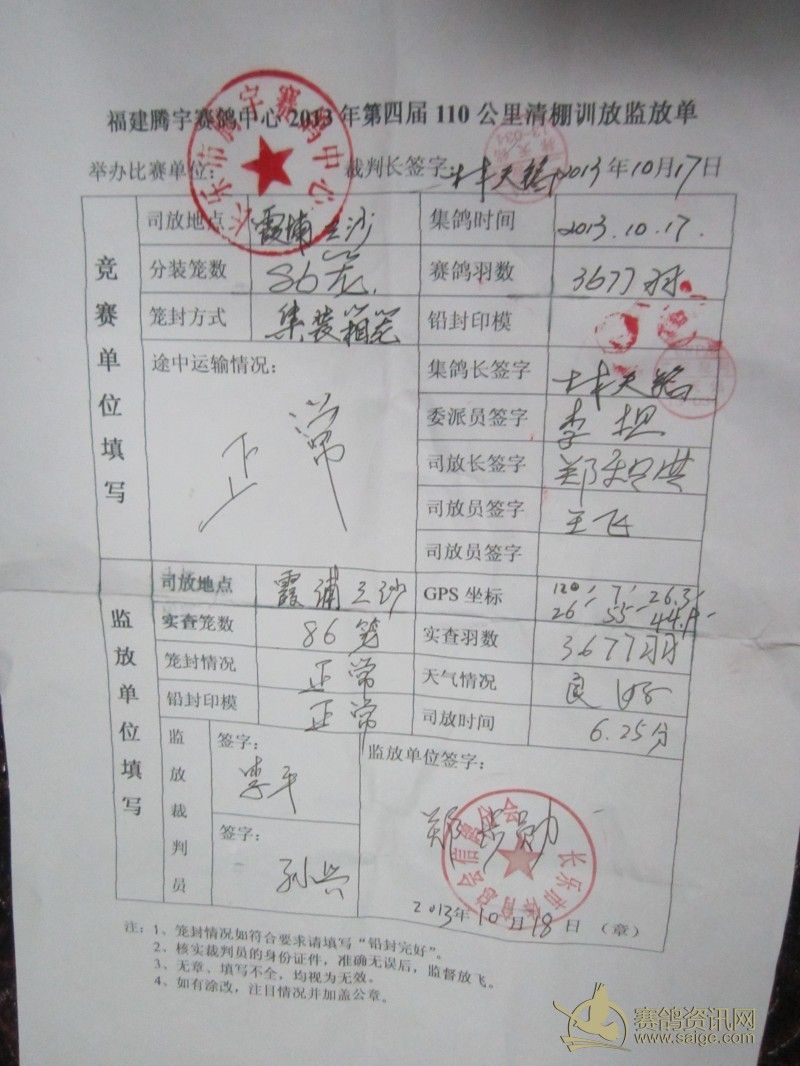 福建腾宇赛鸽中心2013年第四届110公里清棚训放监放单
举办比赛单位： 裁判长签字： 2013年10月17日
竞赛单位填写
司放地点 霞浦三沙 集鸽时间 2013.10.17.
分装笼数 86笼 赛鸽羽数 3677羽
笼封方式 集装箱笼 铅封印模
途中运输情况： 正常
集鸽长签字
委派员签字 李坦
司放长签字
司放员签字 王飞
司放员签字
监放单位填写
司放地点 霞浦三沙 GPS 坐标
实查笼数 86笼 实查羽数 3677羽
笼封情况 正常 天气情况 良好
铅封印模 正常 司放时间 6.25分
监放裁判员
签字： 李干
签字： 孙兴
监放单位签字：
2013年10月18日 （章）
注：1、笼封情况如符合要求请填写“铅封完好”。
2、核实裁判员的身份证件，准确无误后，监督放飞。
3、无章、填写不全，均视为无效。
4、如有涂改，注目情况并加盖公章。
赛鸽资讯网
www.saige.com